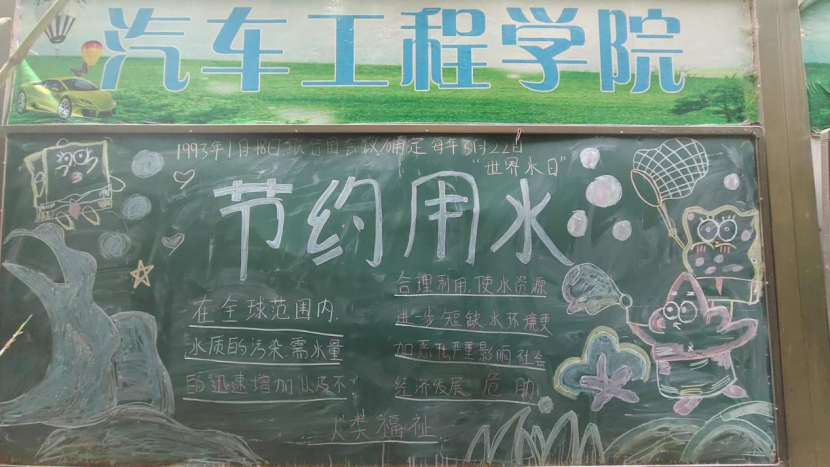 汽车工程学院
1993年1月18日,联合国会议确定每年3月22日
"世界水日"
节约用水
在全球范围内,
水质的污染,需水量
的迅速增加以及不
合理利用,使水资源
进一步短缺,水环境更
加恶化,严重影响社会
经济发展 危
人类福祉